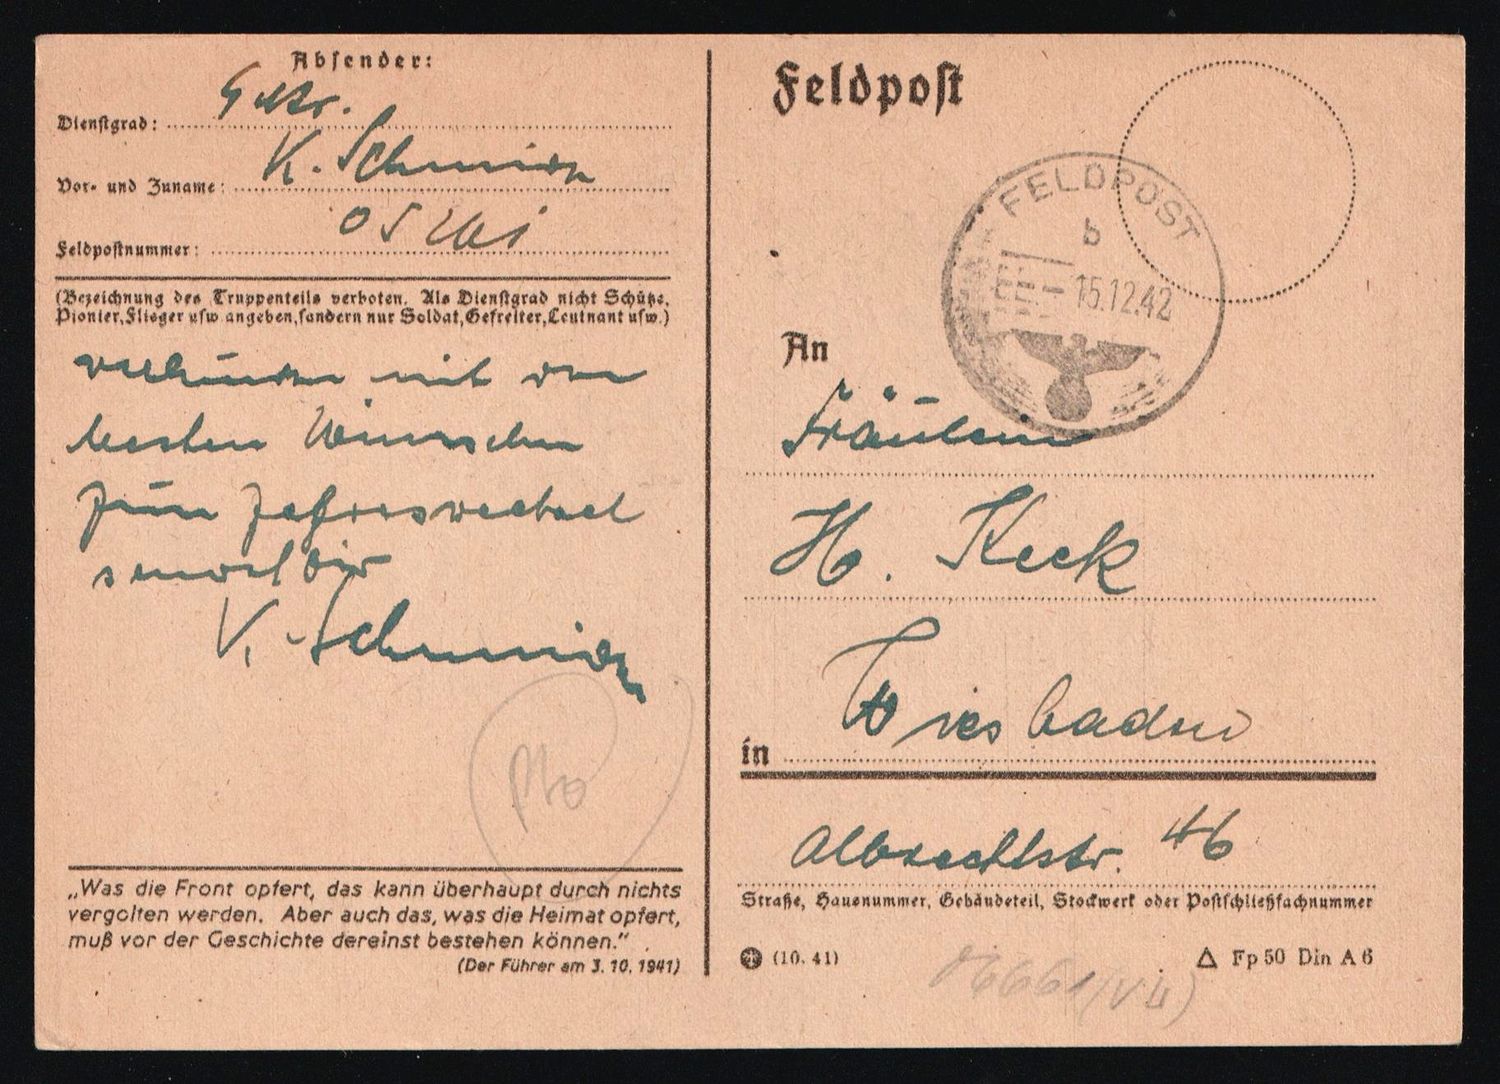 Absender:
Dienstgrad:
Vor- und Zuname: K. Schmidt
Feldpostnummer:
(Bezeichnung des Truppenteils verboten. Als Dienstgrad nicht Schütze,
Pionier, Flieger usw angeben, sondern nur Soldat, Gefreiter, Leutnant usw.)
verbunden mit den
besten Wünschen
zum Jahreswechsel
K. Schmidt
„Was die Front opfert, das kann überhaupt durch nichts
vergolten werden. Aber auch das, was die Heimat opfert,
muß vor der Geschichte dereinst bestehen können.“
(Der Führer am 3. 10. 1941)
Feldpost
FELDPOST
b
15.12.42
An
Fräulein
H. Keck
in Wiesbaden
Albrechtstr. 46
Straße, Hausnummer, Gebäudeteil, Stockwerk oder Postschließfachnummer
(10. 41)
Fp 50 Din A 6